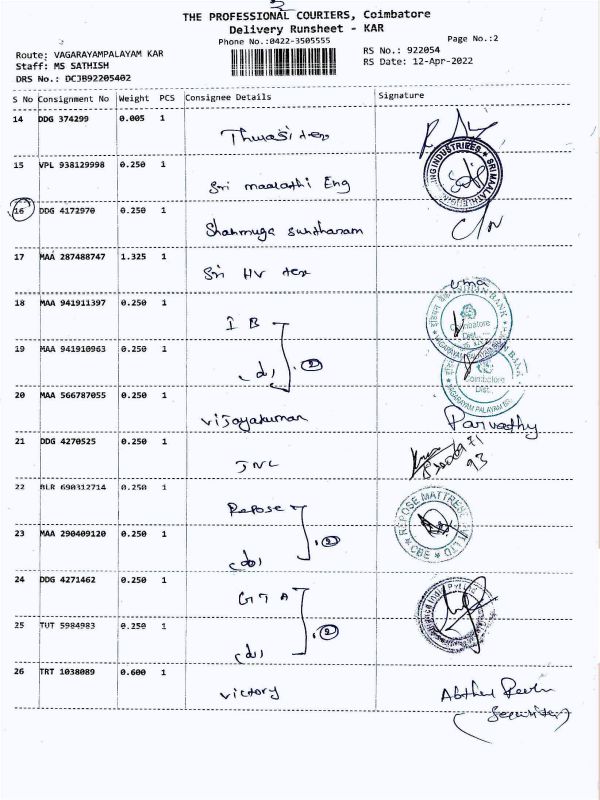 THE PROFESSIONAL COURIERS, Coimbatore
Delivery Runsheet - KAR
Phone No.:0422-3505555
Page No.:2
Route: VAGARAYAMPALAYAM KAR
RS No.: 922054
Staff: MS SATHISH
RS Date: 12-Apr-2022
DRS No.: DCJB92205402
S No Consignment No Weight PCS Consignee Details Signature
14 DDG 374299 0.005 1
15 VPL 938129998 0.250 1
Sri maalathi Eng
16 DDG 4172970 0.250 1
Shanmuga suntharam
17 MAA 287488747 1.325 1
Sri HV tex
uma
18 MAA 941911397 0.250 1
I B
Coimbatore
Dist.
19 MAA 941910963 0.250 1
(do) (2)
Coimbatore
Dist.
20 MAA 566787055 0.250 1
Vijayakumar
Parvathy
21 DDG 4270525 0.250 1
JNL
93
22 BLR 690312714 0.250 1
Repose
REPOSE MATTRESS PVT LTD
CBE
23 MAA 290409120 0.250 1
(do) (2)
24 DDG 4271462 0.250 1
25 TUT 5984983 0.250 1
(do) (2)
26 TRT 1038089 0.600 1
Victory